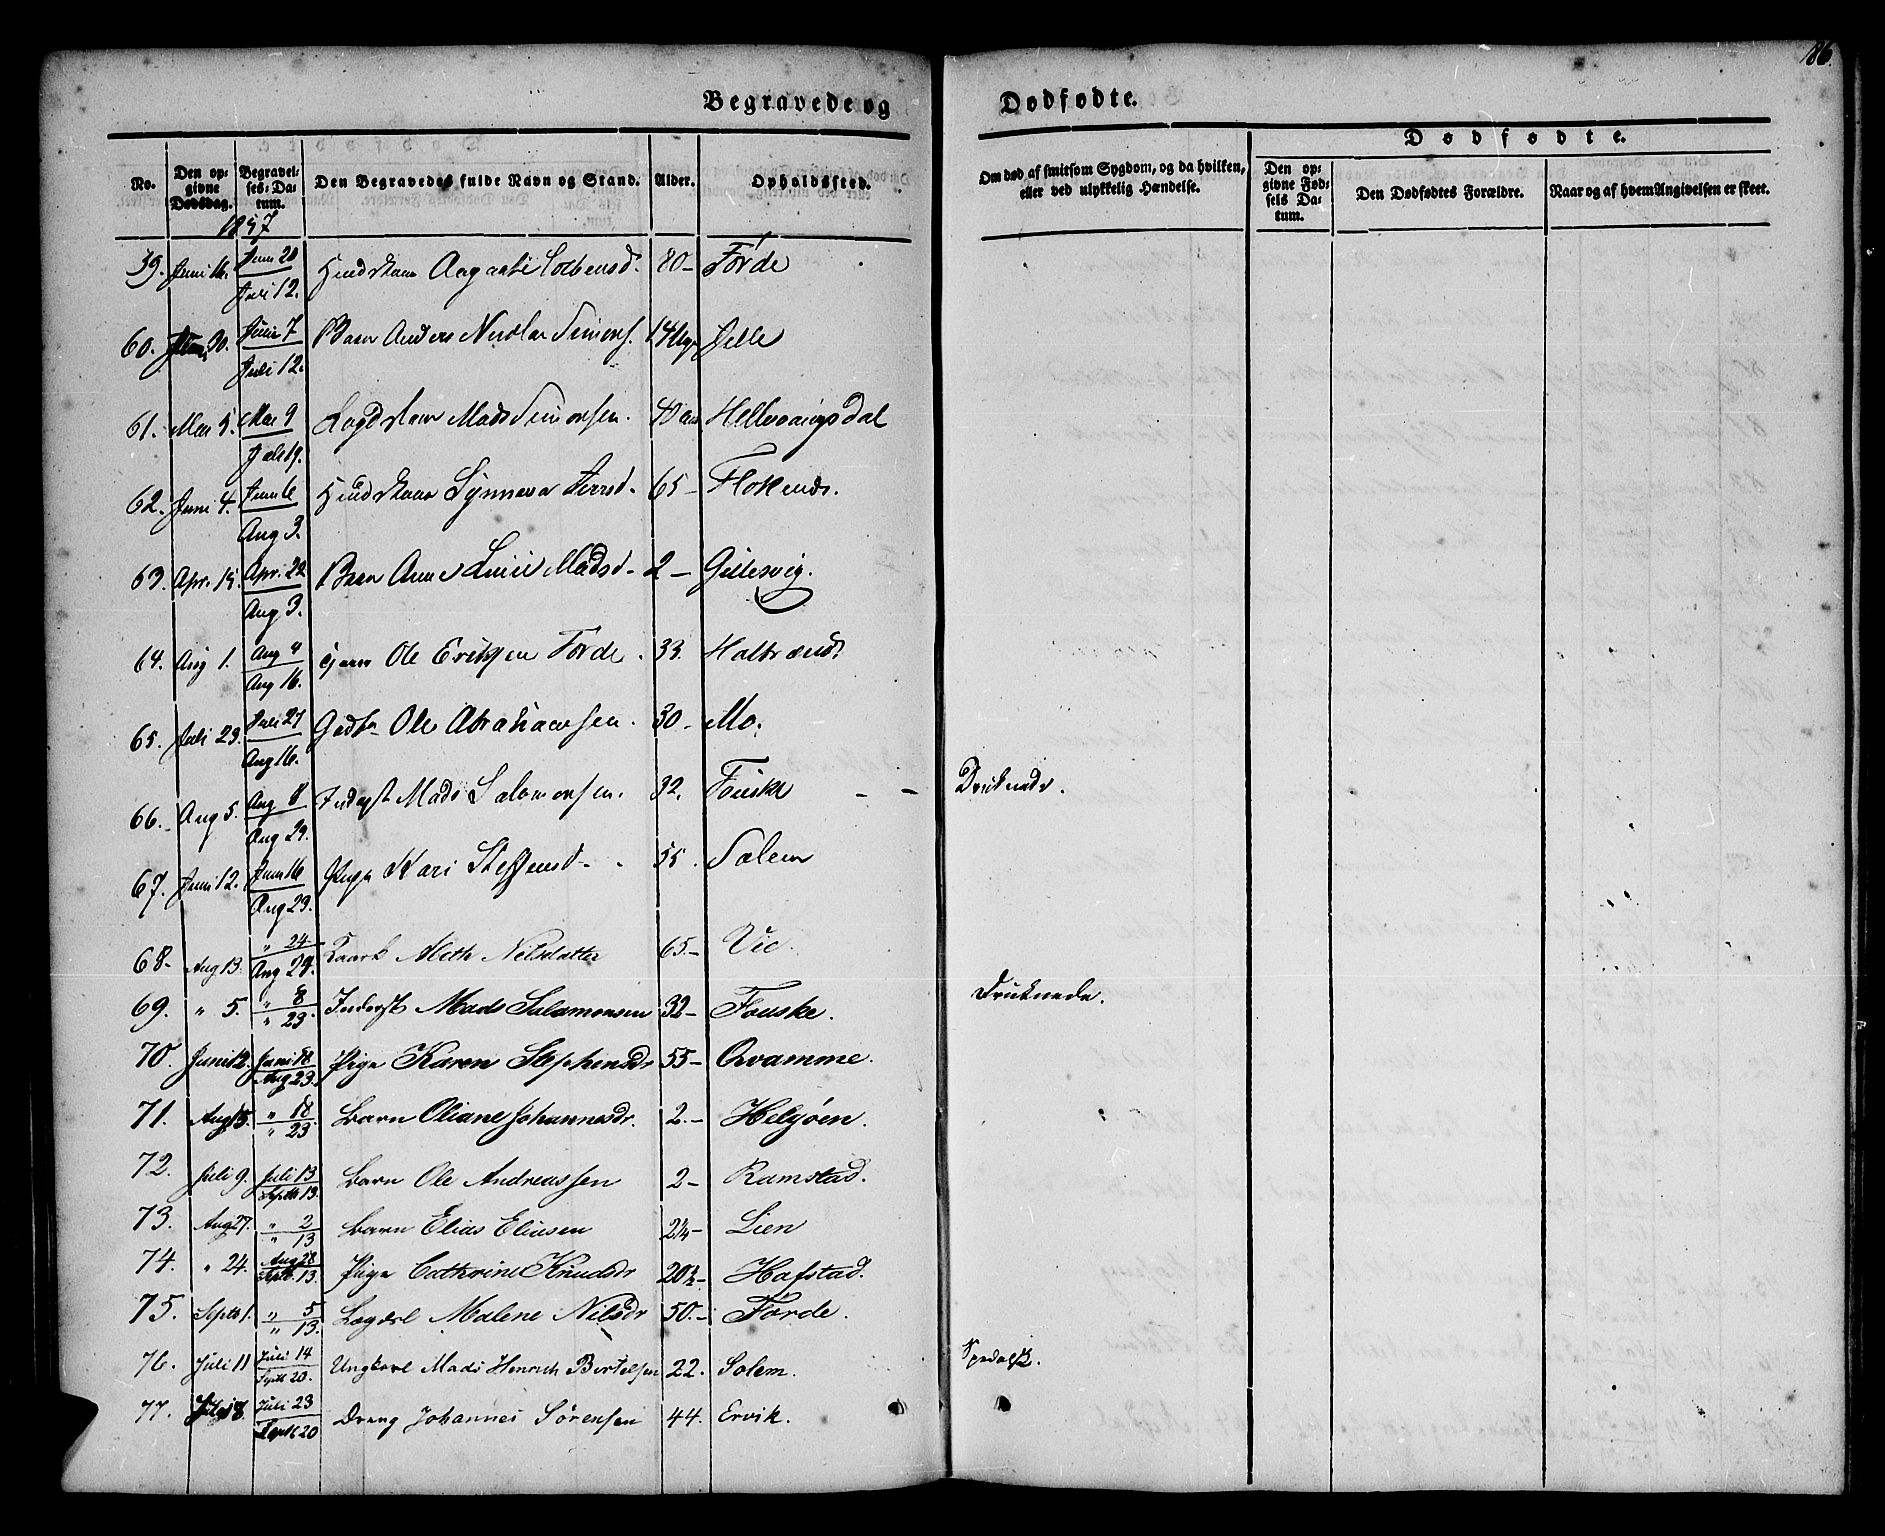 186.
Begravede og Dødfødte.
Dødfødte.
No. Den opgivne Dødsdag. Begravelses-Datum. Den Begravedes fulde Navn og Stand. Alder. Opholdssted. Om død af smitsom Sygdom, og da hvilken, eller ved ulykkelig Hændelse. Den opgivne Fødsels Datum. Den Dødfødtes Forældre. Naar og af hvem Angivelsen er skeet.
1857
59. Juni 16. Juni 20 Juli 12. 80- Förde
60. 30. Juni 7 Juli 12. Barn Anders Nicolai Simons. 14 Jelle
61. Mai 5. Mai 9 Juli 19. Lægdslem Mads Simonsen. 40 aar Hellevangsdal
62. Juni 4. Juni 6 Aug 3. Synneva 65- Flokenæs.
63. Apr. 15. Apr. 22 Aug 3. Barn Anne Lucie Madsd- 2- Gillesvig.
64. Aug 1. Aug 4 Aug 16. Ole Eriksen Förde. 33. Halbrænd
65. Juli 23. Juli 27 Aug 16. Gadbr Ole Abrahamsen. 30- Mo.
66. Aug 5. Aug 8 Aug 29. Inderst Mads Salomonsen. 32. Fouske - - Druknede.
67. Juni 12. Juni 16 Aug 23. Pige Kari Steffensd- 55. Solem
68. Aug 13. " 24 Aug 29. Kaark Meth Nilsdatter 65.- Vie.
69. " 5. " 8 " 23. Inderst Mads Salamonsen 32- Fouske. Druknede.
70. Juni 12. Juni 18 Aug 23. Pige Karen Stephensdr 55- Qvamme.
71. Aug 15. " 18 " 23. Barn Oliane Johannesdr. 2.- Helgöen.
72. Juli 9. Juli 13 Septb 13. Barn Ole Andreassen 2- Ramstad.
73. Aug 27. " 2 " 13 Barn Elias Eliasen 2¼- Lien
74. " 24. Aug 28 Septb. 13. Pige Cathrine Knudsdr 20½- Hafstad.
75. Septb 1. " 5 " 13. Lægdsl Malene Nilsdr 50.- Förde.
76. Juli 11 Juli 14 Septb 20. Ungkarl Mads Henrich Bertelsen 22. Solem. Spedalsk.
77. 18. Juli 23 Septb 20 Dreng Johannes Sörensen 44. Ervik.